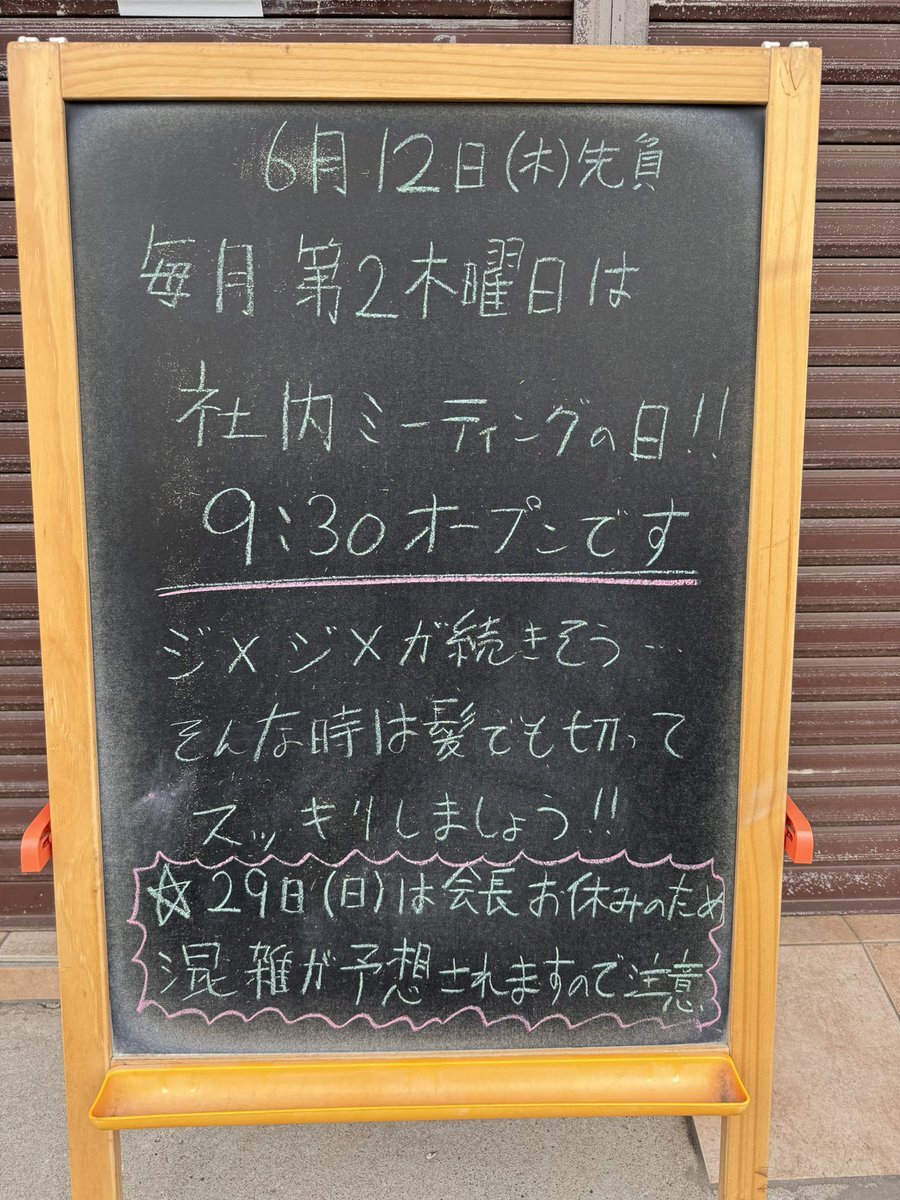 6月12日(木)先負
毎月第2木曜日は
社内ミーティングの日!!
9:30オープンです
ジメジメが続きそう…
そんな時は髪でも切って
スッキリしましょう!!
☆29日(日)は会長お休みのため
混雑が予想されますので注意